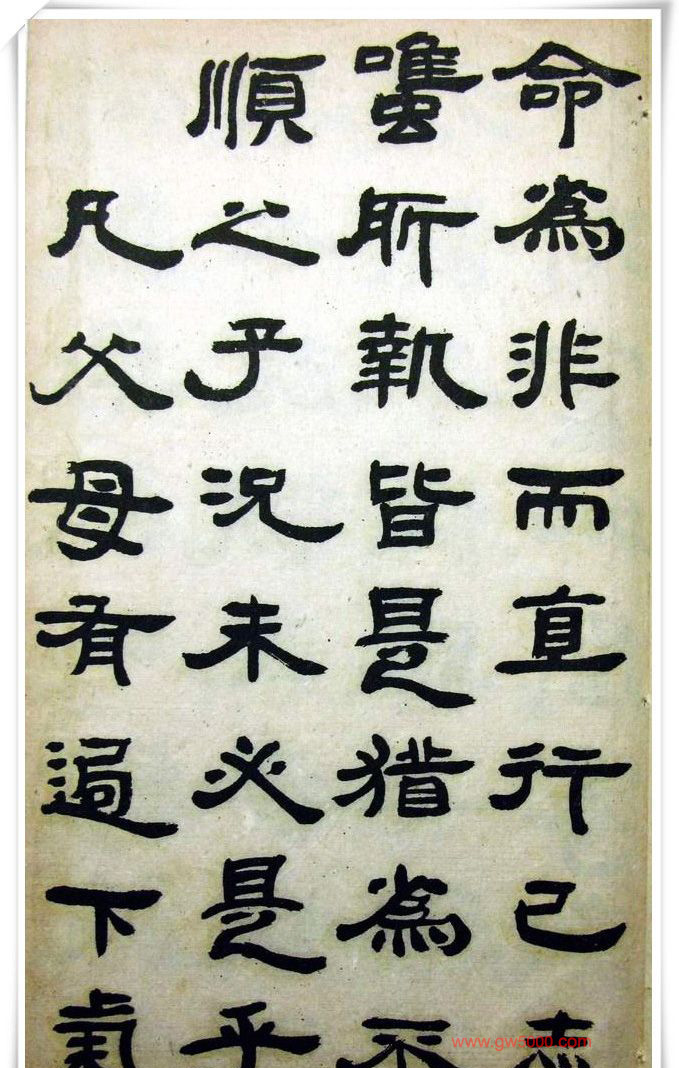 命為非而直行己志
雖所執皆是猶為不
順之子況未必是乎
凡父母有過下氣
www.gw1000.com